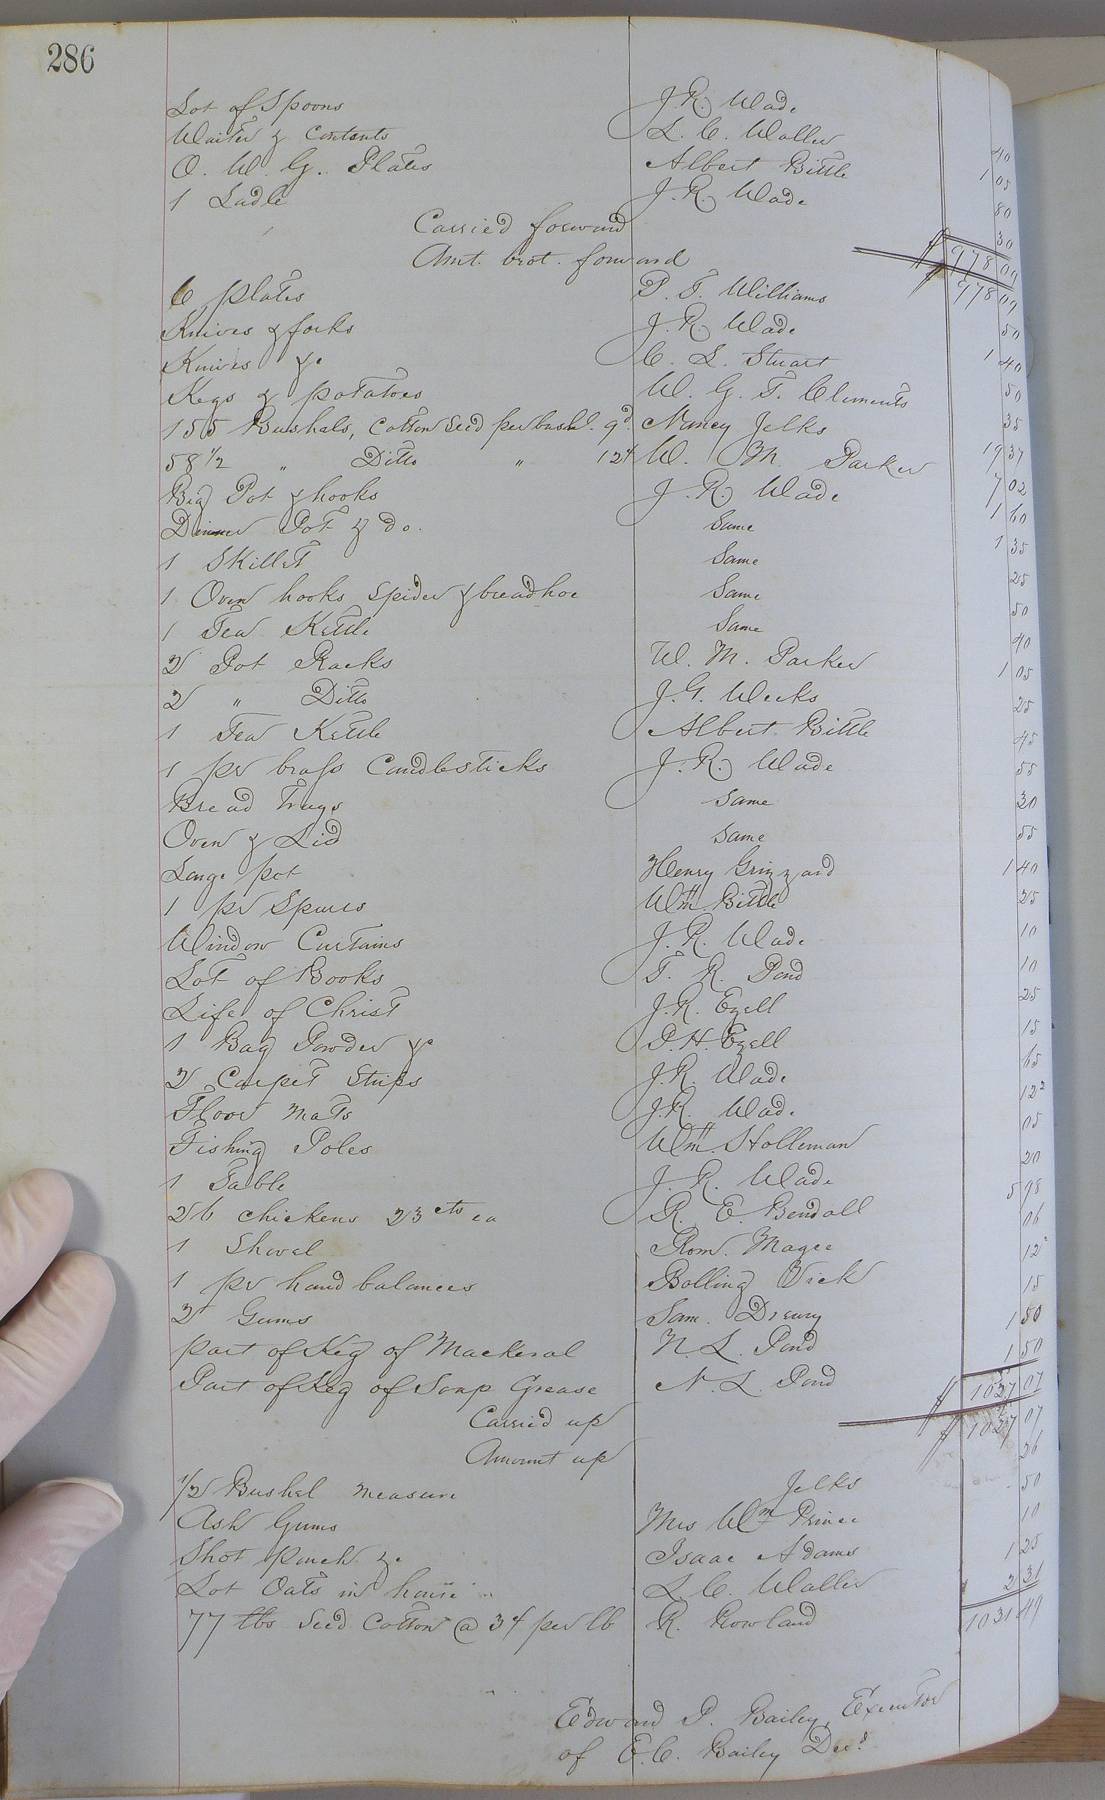 286
Lot of Spoons J. R. Wade 40
Waiter & Contents L. C. Waller 1 05
O. W. G. Plates Albert Bittle 80
1 Ladle J. R. Wade 30
Carried forward $ 978 09
Amt. brot. forward $ 978 09
6 plates P. T. Williams 50
Knives & forks J. R. Wade 1 40
Knives &c C. L. Stuart 50
Kegs & potatoes W. G. T. Clements 35
155 Bushels, Cotton Seed per bushl. 9d. Nancy Jelks 19 37
58 1/2 " Ditto " 12¢ W. M. Parker 7 02
Big Pot & hooks J. R. Wade 1 60
Dinner Pot & do. Same 1 35
1 Skillet Same 25
1 Oven hooks Spider & breadhoe Same 50
1 Tea Kettle Same 40
2 Pot Racks W. M. Parker 1 05
2 " Ditto J. G. Weeks 25
1 Tea Kettle Albert Bittle 45
1 pr brass Candlesticks J. R. Wade 55
Bread Trays Same 30
Oven & Lid Same 55
Large pot Henry Grizzard 1 40
1 pr Spurs Wm. Bittle 25
Window Curtains J. R. Wade 10
Lot of Books T. R. Pond 10
Life of Christ J. R. Ezell 25
1 Bag Powder &c P. H. Ezell 15
2 Carpet Strips J. R. Wade 65
Floor Mats J. R. Wade 12 2
Fishing Poles Wm. Holleman 05
1 Table J. R. Wade 20
26 chickens 23 cts ea R. E. Bendall 5 98
1 Shovel Rom. Magee 06
1 pr hand balances Bolling Vick 12 2
2 Gums Sam. Drewry 15
Part of Keg of Mackeral N. L. Pond 1 50
Part of Keg of Soap Grease N. L. Pond 1 50
Carried up $ 1027 07
Amount up $ 1027 07
1/2 Bushel measure Jelks 26
Ash Gums Mrs Wm Prince 50
Shot pouch &c. Isaac Adams 10
Lot Oats in house L. C. Waller 1 25
77 lbs Seed Cotton @ 3¢ per lb R. Rowland 2 31
1031 49
Edward P. Bailey, Executor
of E. C. Bailey Decd.